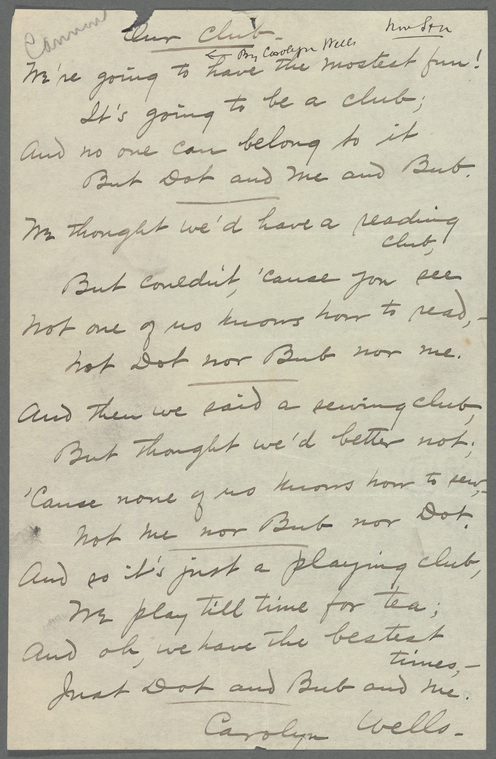 Our Club.
By Carolyn Wells
We're going to have the mostest fun!
It's going to be a club;
And no one can belong to it
But Dot and me and Bub.
We thought we'd have a reading
club,
But couldn't, 'cause you see
Not one of us knows how to read,—
Not Dot nor Bub nor me.
And then we said a sewing club,
But thought we'd better not;
'Cause none of us knows how to sew,—
Not me nor Bub nor Dot.
And so it's just a playing club,
We play till time for tea;
And oh, we have the bestest
times,—
Just Dot and Bub and me.
Carolyn Wells—